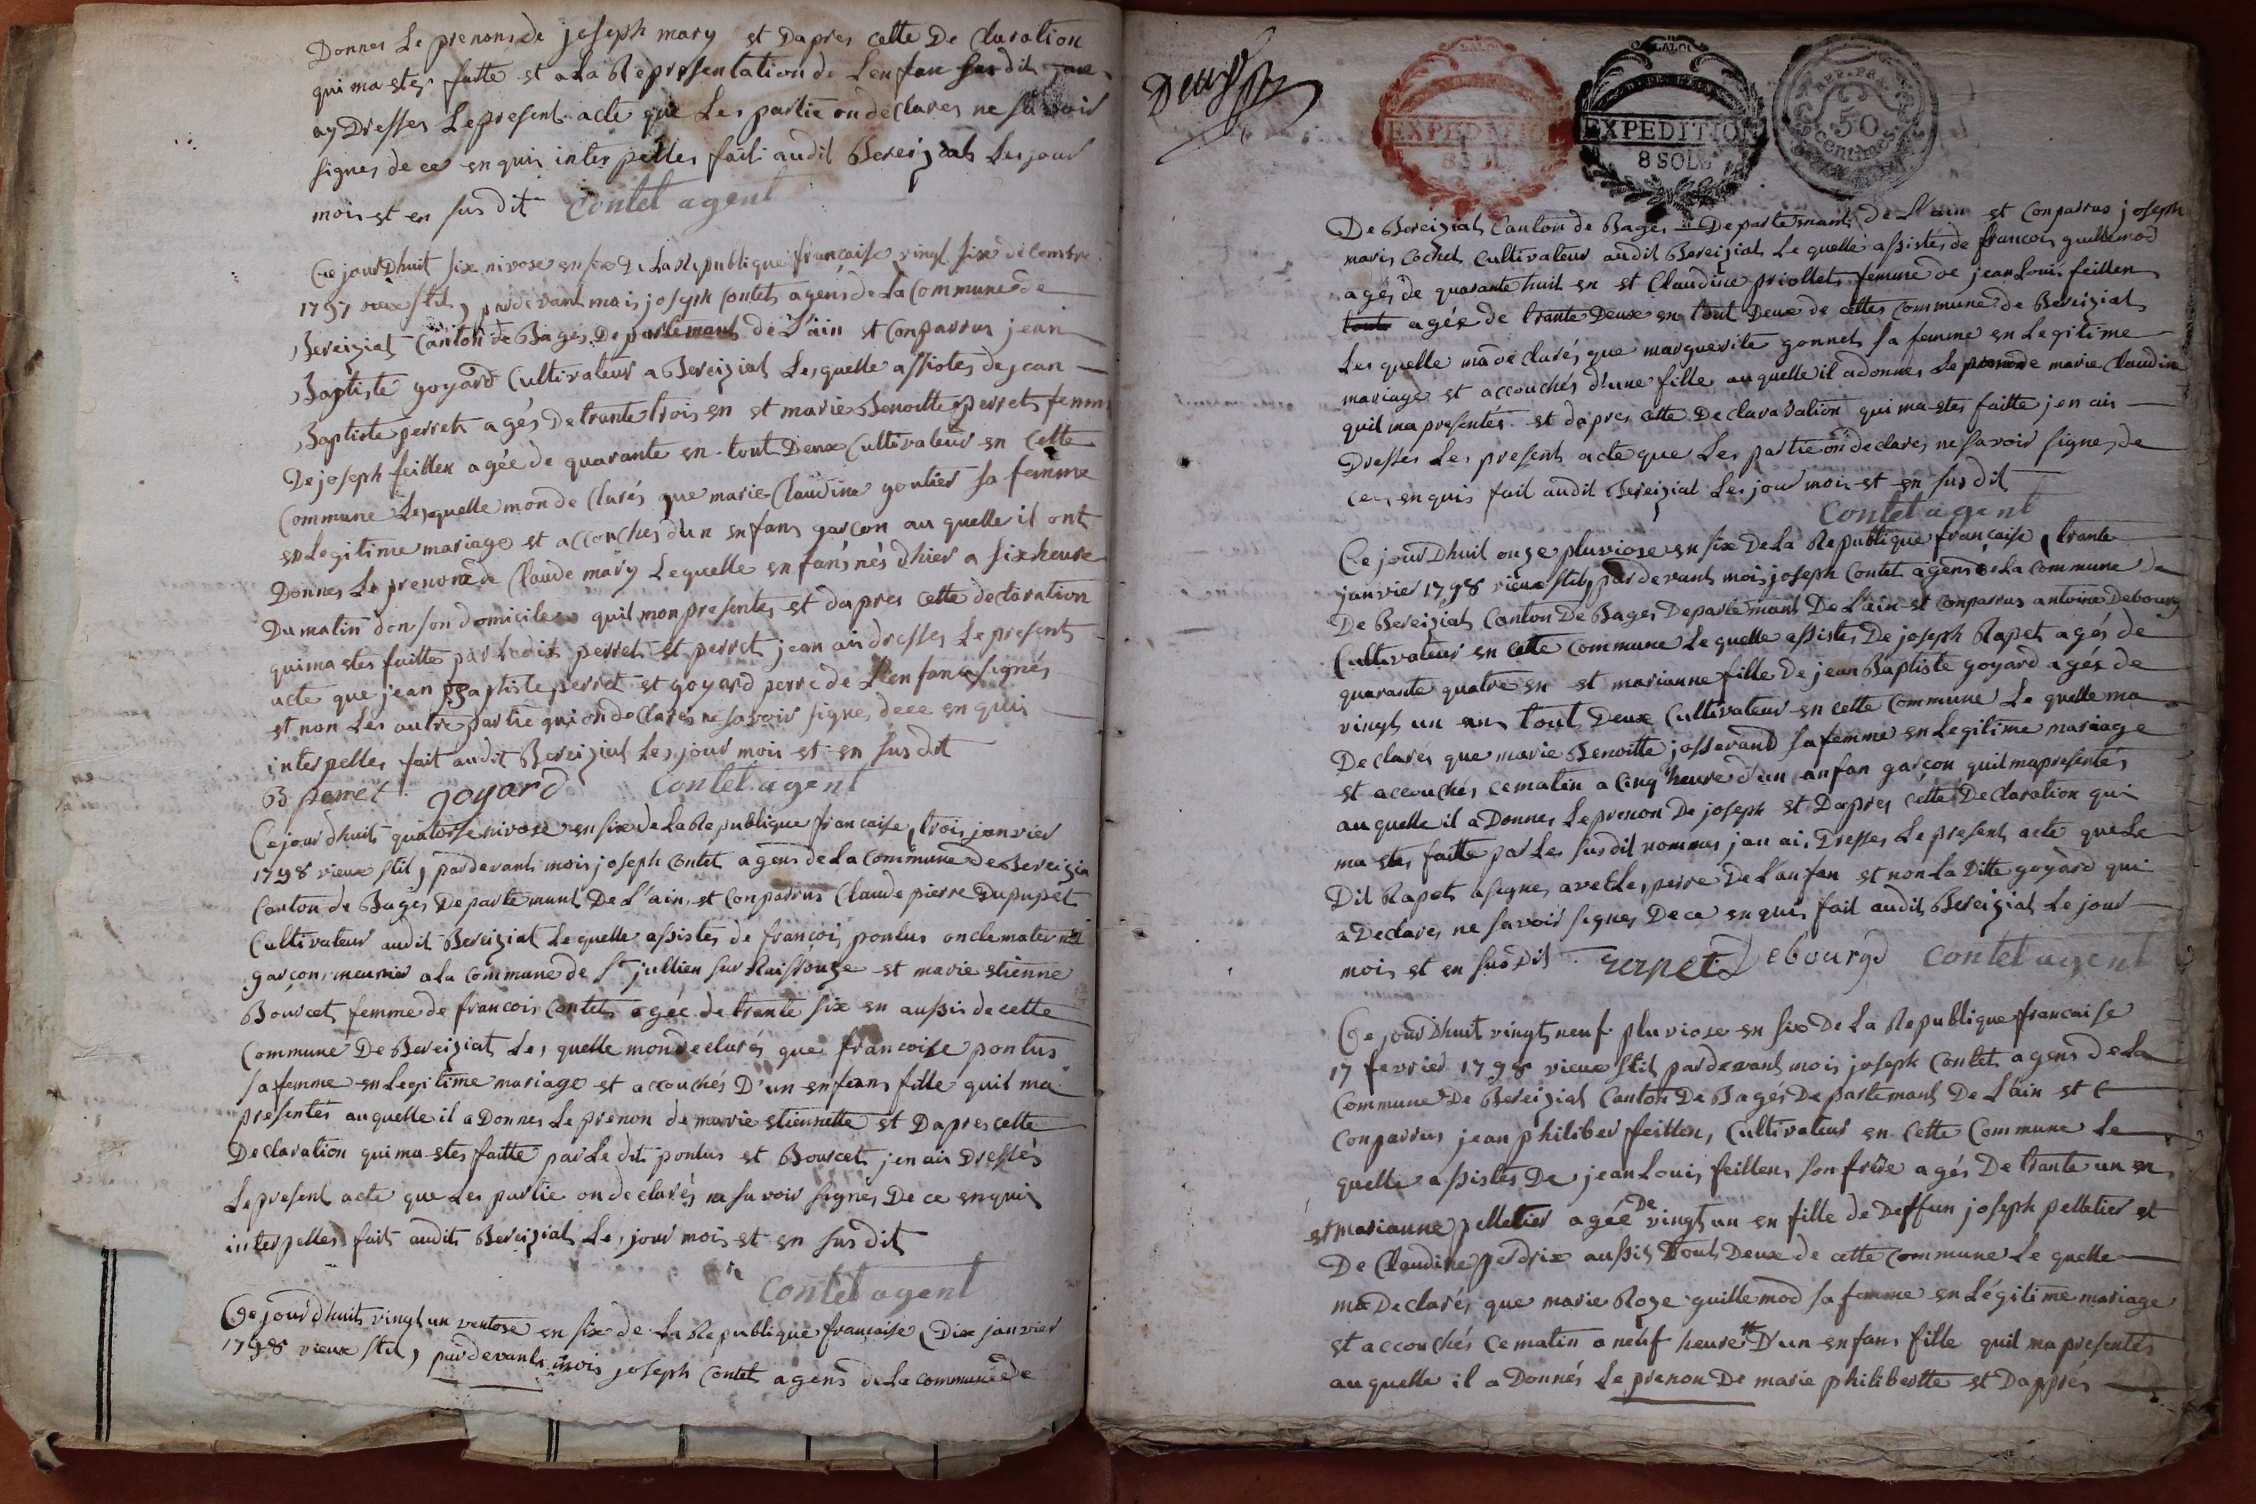 Donnes Le prenons de joseph mary et Dapres cette De claration
qui ma etes faitte et a La Representation de L'enfan susdit
ay Dresses Le present acte que Les partie on declares ne savoir
signes de ce enquis interpelles fait audit Bereiziat Les jour
mois et en susdit contet agent
Ce jourDhuit six nivose en six De La Republique francaise vingt six decembre
1797 vieux stil, pardevant mois joseph contet agens de La commune de
Bereiziat canton de Bagés Departemant de L'ain et Conparrus jean
Baptiste goyard Cultivateur a Bereiziat Lesquelle assistes de jean
Baptiste perret agés de trante trois en et marie Benoitte perret femme
De joseph feillen agée de quarante en tout Deux Cultivateur en Cette
Commune Lesquelle mon declarés que marie Claudine goutier sa femme
en Legitime mariage et accouches dun enfans garcon au quelle il ont
Donnes Le prenom de Claude mary Le quelle enfans nés dhier a six heure
Du matin don son domicile quil mon presentes et dapres cette declaration
qui ma etes faitte par Ledit perret et perret jean ai dresses Le present
acte que jean Baptiste perret et goyard perre de L'enfan a signés
et non Les autre partie qui on declarés ne savoir signe, dece enquis
interpelles fait audit Bereiziat Les jour mois et en susdit
B perret goyard Contet agent
Ce jour dhuit quatorse nivose en six de La Republique francaise, trois janvier
1798 vieux stil, pardevant mois joseph Contet agens de La commune de Bereizia
Canton de Bagés Departemant De L'ain, et Conparrus Claude pierre Dupupet
Cultivateur audit Bereiziat Le quelle assistes de francois pontus oncle maternel
garcon meunier a La commune de St jullien sur Raissouze et marie etienne
Bourcet femme de francois Contet agée de trante six en aussis de cette
Commune De Bereiziat Les quelle mon declarés que francoise pontus
sa femme en Legitime mariage et accouchés D'un enfans fille quil ma
presentés auquelle il a Donnes Le prenon de marie etiennette et Dapres cette
Declaration qui ma etes faitte par Le dit pontus et Bourcet, jen ais Dressés
Le present acte que Les partie on declarés ne savoir signés, De ce enquis
interpelles fait audit Bereiziat Les jour mois et en susdit
contet agent
Ce jour dhuit vingt un ventose en six de La Republique francaise, Dix janvier
1798 vieux stil, pardevant mois joseph Contet agens de La commune de
LA LOI
EXPEDITION
8 SOLS
LA LOI
EXPEDITION
8 SOLS
50
centimes
De Bereiziat Canton de Bagés Departemant de L'ain et Conparrus joseph
maris Cochet Cultivateur audit Bereiziat Le quelle assistés de francois guillemod
agés de quarante huit en et Claudine priollet femme de jean Louis feillen
agée de trante Deux en tout Deux de cette commune de Bereiziat
Les quelle ma declarés que marguerite gonnet sa femme en Legitime
mariage et accouchés d'une fille auquelle il a donnes Le prenom de marie Claudine
quil ma presentés et dapres cette Declaration qui ma etes faitte jen ais
Dresses Les present acte que Les partie on declares ne savoir signes de
ce, enquis fait audit Bereiziat Les jour mois et en susdit
Contet agent
Ce jour Dhuit onze pluviose en six De La Republique francaise, trante
janvier 1798 vieux stil, pardevant mois joseph Contet agens de La commune de
De Bereiziat Canton De Bagés Departemant De L'ain et Conparrus antoine Debourg
Cultivateur en cette commune Le quelle assistes De joseph Rapet agés de
quarante quatre en et marianne fille De jean Baptiste goyard agée de
vingt un en, tout Deux Cultivateur en cette commune Le quelle ma
Declarés que marie Benoitte josserand sa femme en Legitime mariage
et accouchés ce matin a cinq heure d'un enfan garcon quil ma presentés
auquelle il a Donnes Le prenon De joseph et Dapres cette Declaration qui
ma etes faitte par Les susdit nommes jan ais Dresses Le present acte que Le
Dit Rapet a signes avec Le, perre De L'anfan et non La Ditte goyard qui
a Declares ne savoir signes De ce enquis fait audit Bereiziat Le jour
mois et en susdit Debourgd contet agent
Ce jour Dhuit vingt neuf pluviose en six De La Republique francaise
17 fevrier 1798 vieux stil pardevant mois joseph Contet agens de La
Commune De Bereiziat Canton De Bagés Departemant De L'ain et C
Conparrus jean philiber feillen, Cultivateur en Cette Commune Le
quelle assistes De jean Louis feillen, son frere agés De trante un en
et marianne pelletier agée De vingt un en fille de Deffun joseph pelletier et
De Claudine perdrix aussis tout Deux de cette commune Le quelle
ma Declarés que marie Roze guillemod sa femme en Légitime mariage
et accouchés ce matin a neuf heure D'un enfans fille quil ma presentés
auquelle il a Donnés Le prenon De marie philibertte et Dapprés